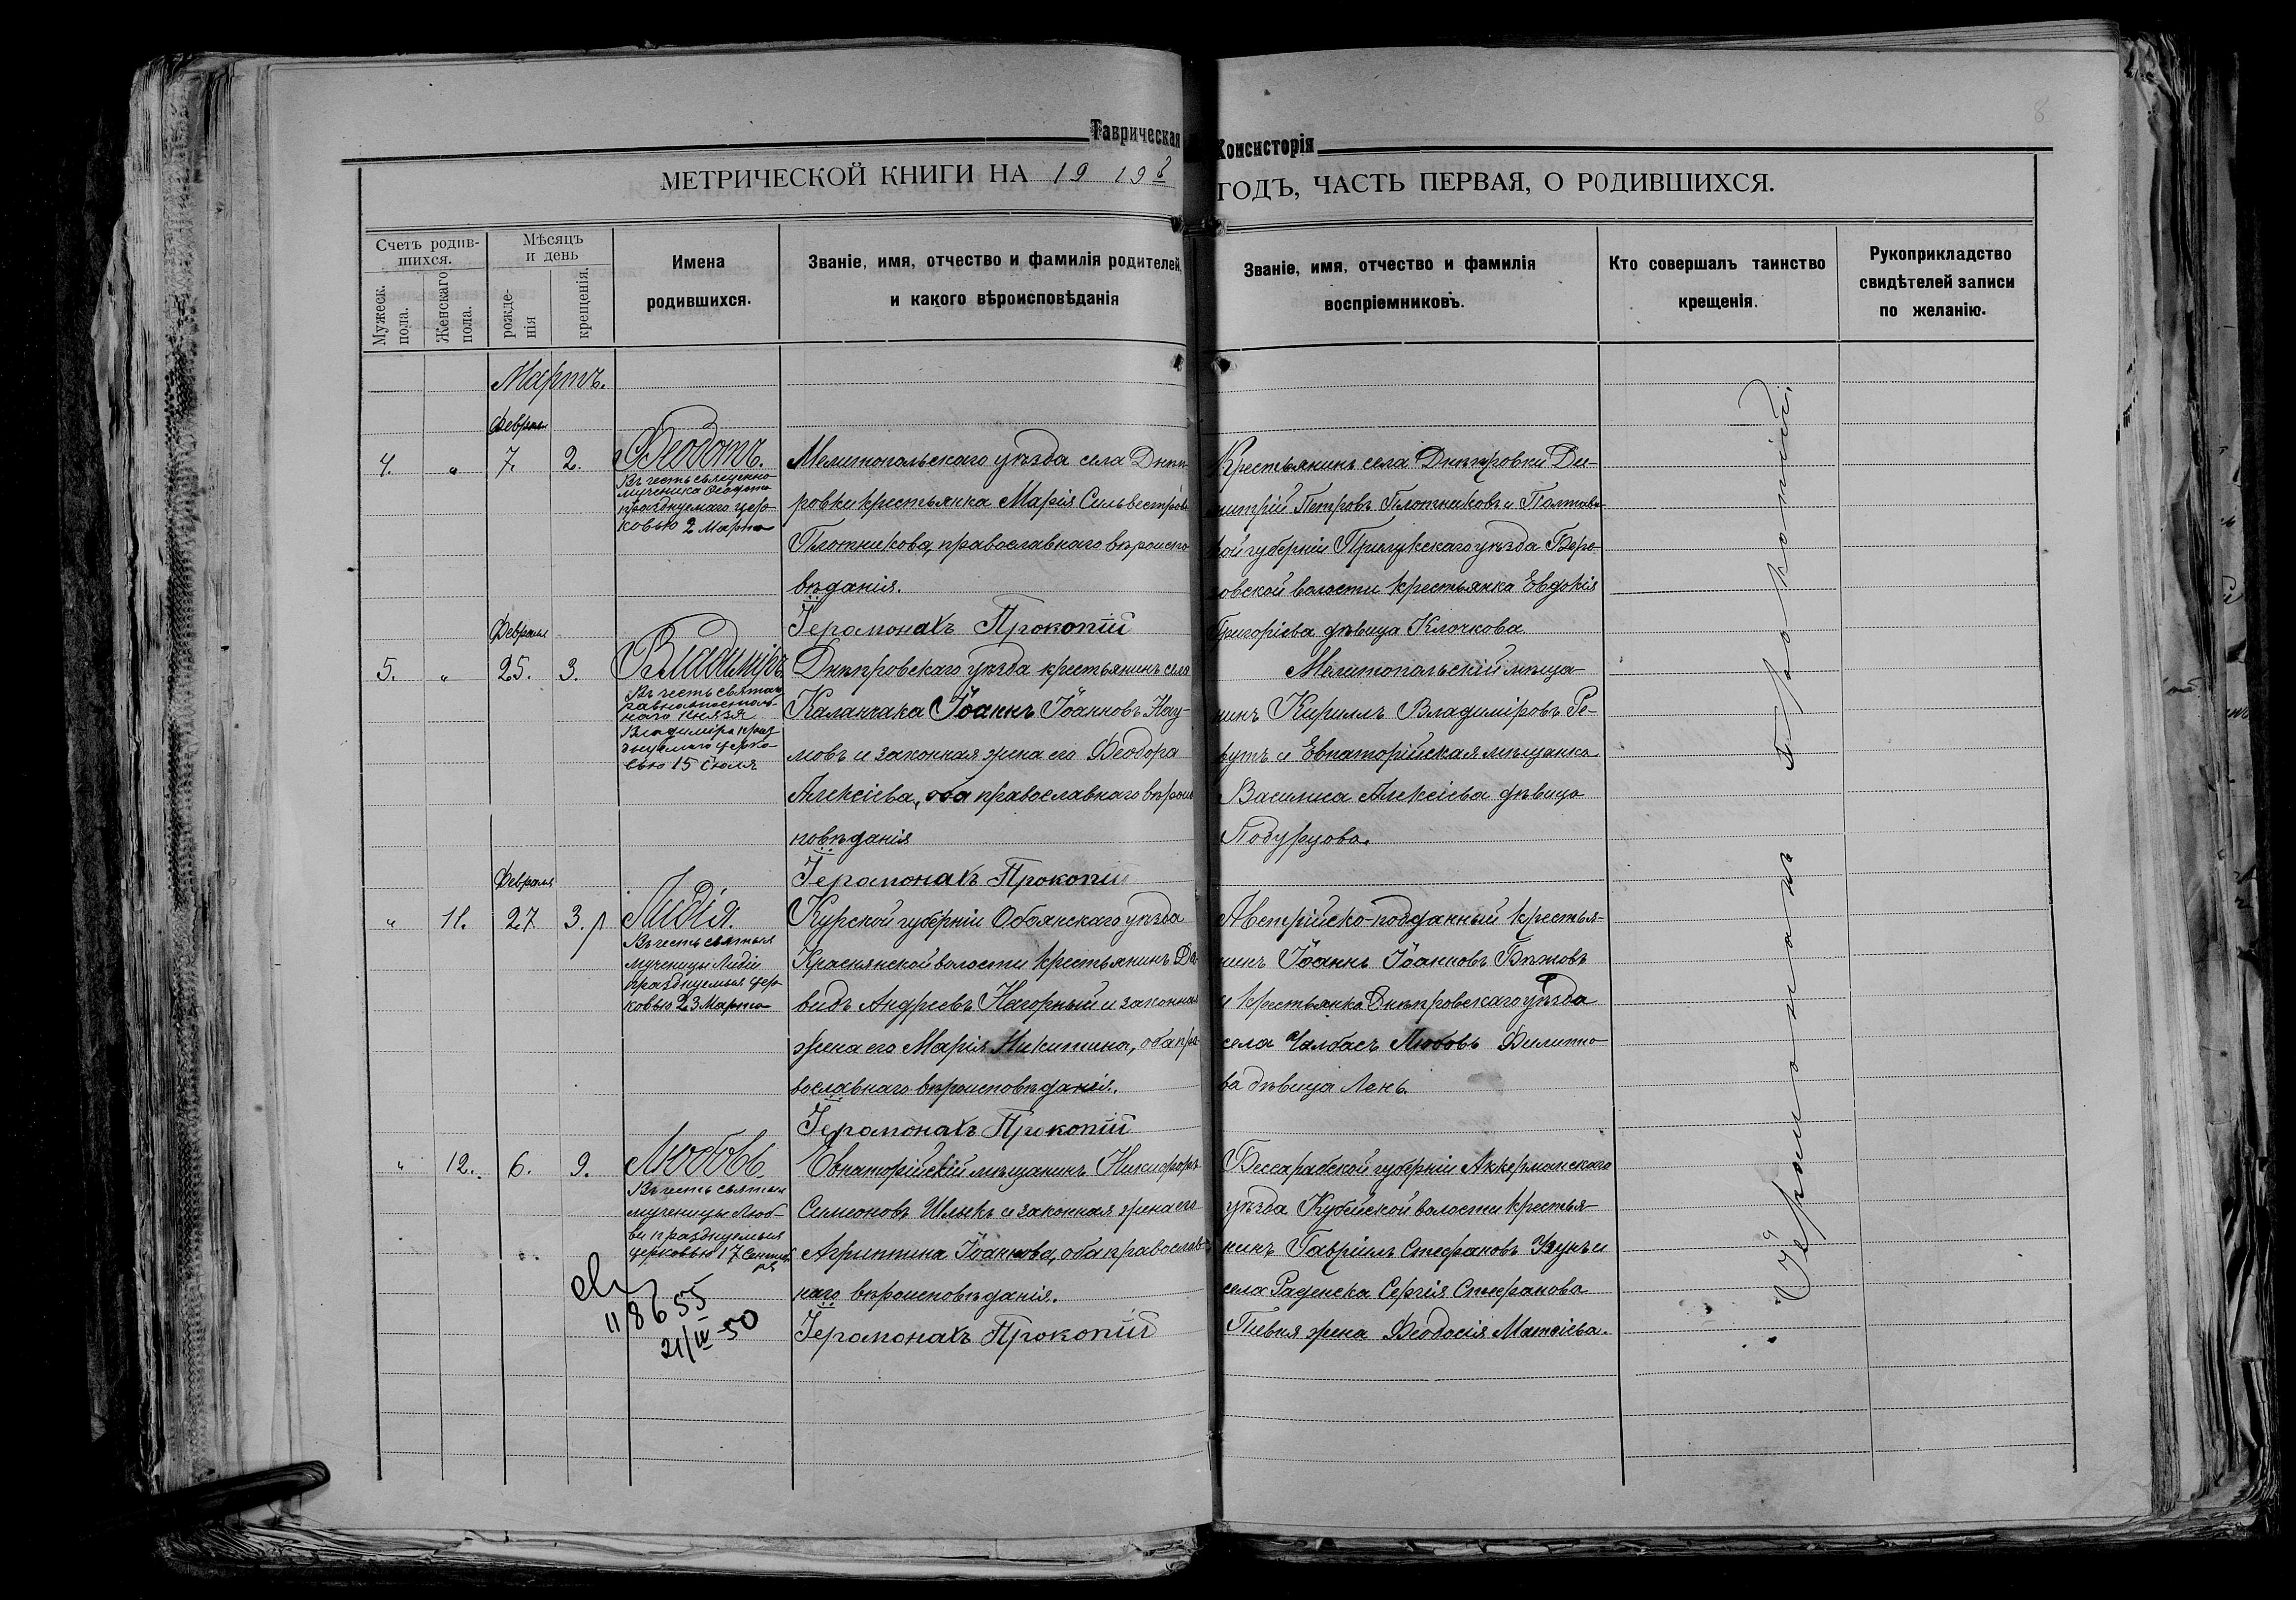 Таврическая Консисторія
8
МЕТРИЧЕСКОЙ КНИГИ НА 19 19 ГОДЪ, ЧАСТЬ ПЕРВАЯ, О РОДИВШИХСЯ.
Счетъ родив-
шихся.
Мужеск.
пола.
Женскаго
пола.
Мѣсяцъ
и день
рожде-
нія
крещенія.
Имена
родившихся.
Званіе, имя, отчество и фамилія родителей,
и какого вѣроисповѣданія
Званіе, имя, отчество и фамилія
воспріемниковъ.
Кто совершалъ таинство
крещенія.
Рукоприкладство
свидѣтелей записи
по желанію.
Мартъ.
Февраля
4. " 7. 2. Ѳеодотъ.
Въ честь священно-
мученика Ѳеодота
празднуемаго цер-
ковью 2 Марта
Мелитопольскаго уѣзда села Днѣп-
ровки крестьянка Марія Сильвестрова
Плотникова, православнаго вѣроиспо-
вѣданія.
Іеромонахъ Прокопій
Крестьянинъ села Днѣпровки Ди-
митрій Петровъ Плотниковъ и Полтавс-
кой губерніи Прилукскаго уѣзда
волости крестьянка Евдокія
Григоріева дѣвица Клочкова
Февраля
5. " 25. 3. Владиміръ
Въ честь святаго
равноапостоль-
наго Князя
Владиміра празд-
нуемаго церко-
вью 15 Іюля
Днѣпровскаго уѣзда крестьянинъ села
Каланчака Іоаннъ Іоанновъ Нау-
мовъ и законная жена его Ѳеодора
Алексіева, оба православнаго вѣроис-
повѣданія
Іеромонахъ Прокопій
Мелитопольскій мѣща-
нинъ Кириллъ Владиміровъ Ре-
вутъ и Евпаторійская мѣщанка
Василиса Алексіева дѣвица
Подурцова.
Февраля
" 11. 27. 3. Лидія.
Въ честь святыя
мученицы Лидіи
празднуемыя цер-
ковью 23 Марта
Курской губерніи Обоянскаго уѣзда
Краснянской волости крестьянинъ Да-
видъ Андреевъ Нагорный и законная
жена его Марія Никитина, оба пра-
вославнаго вѣроисповѣданія.
Іеромонахъ Прокопій
Австрійско-подданный крестья-
нинъ Іоаннъ Іоанновъ
и крестьянка Днѣпровскаго уѣзда
села Чалбасъ Любовь Филиппо-
ва дѣвица Лень.
" 12. 6. 9. Любовь
Въ честь святыя
мученицы Люб-
ви празднуемыя
церковью 17 Сентяб-
ря
Евпаторійскій мѣщанинъ Никифоръ
Симеоновъ Шлыкъ и законная жена его
Агриппина Іоаннова, оба православ-
наго вѣроисповѣданія.
Іеромонахъ Прокопій
Бессарабской губерніи Аккерманскаго
уѣзда Кубейской волости крестья-
нинъ Гавріилъ Стефановъ и
села Раденска Сергія Стефанова
жена Ѳеодосія Матѳіева.
118655
21/IV-50
Іеромонахъ Прокопій.